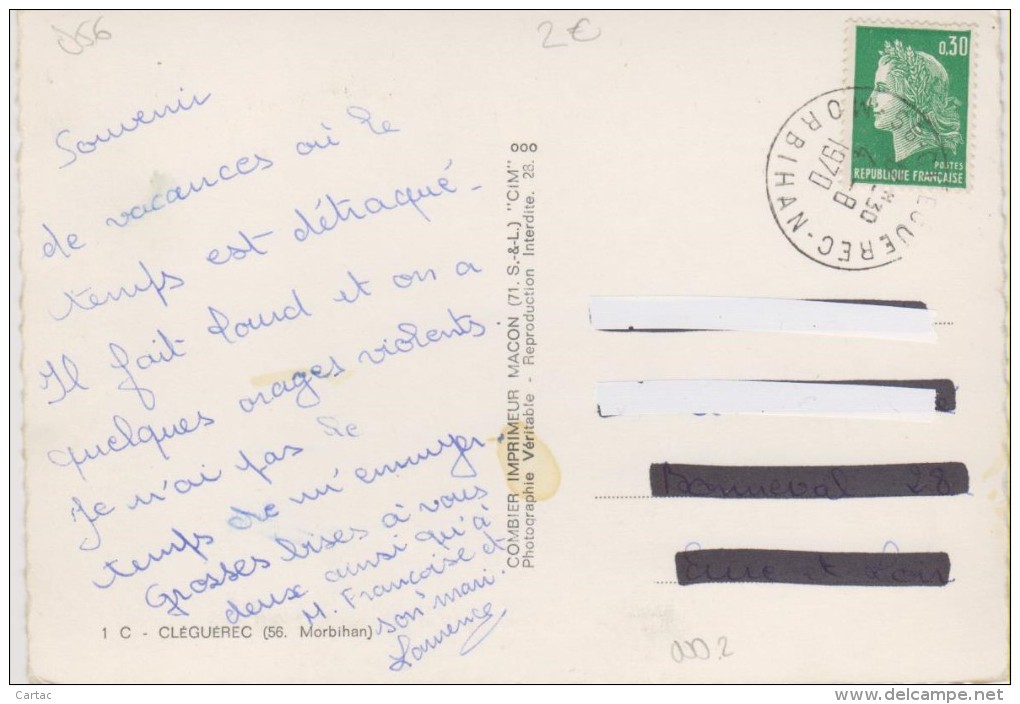 056
2€
Souvenir
de vacances où le
temps est détraqué -
Il fait lourd et on a
quelques orages violents
Je n'ai pas le
temps de m'ennuyer
Grosses bises à vous
deux ainsi qu'à
M. Françoise et
son mari.
Laurence
1 C - CLÉGUÉREC (56. Morbihan)
COMBIER IMPRIMEUR MACON (71. S.-&-L.) "CIM"
Photographie Véritable - Reproduction Interdite. 28.
0,30
POSTES
REPUBLIQUE FRANÇAISE
EGUEREC-NA
MORBIHAN
1970
Bonneval 28
Eure et Loir
Cartac
www.delcampe.net